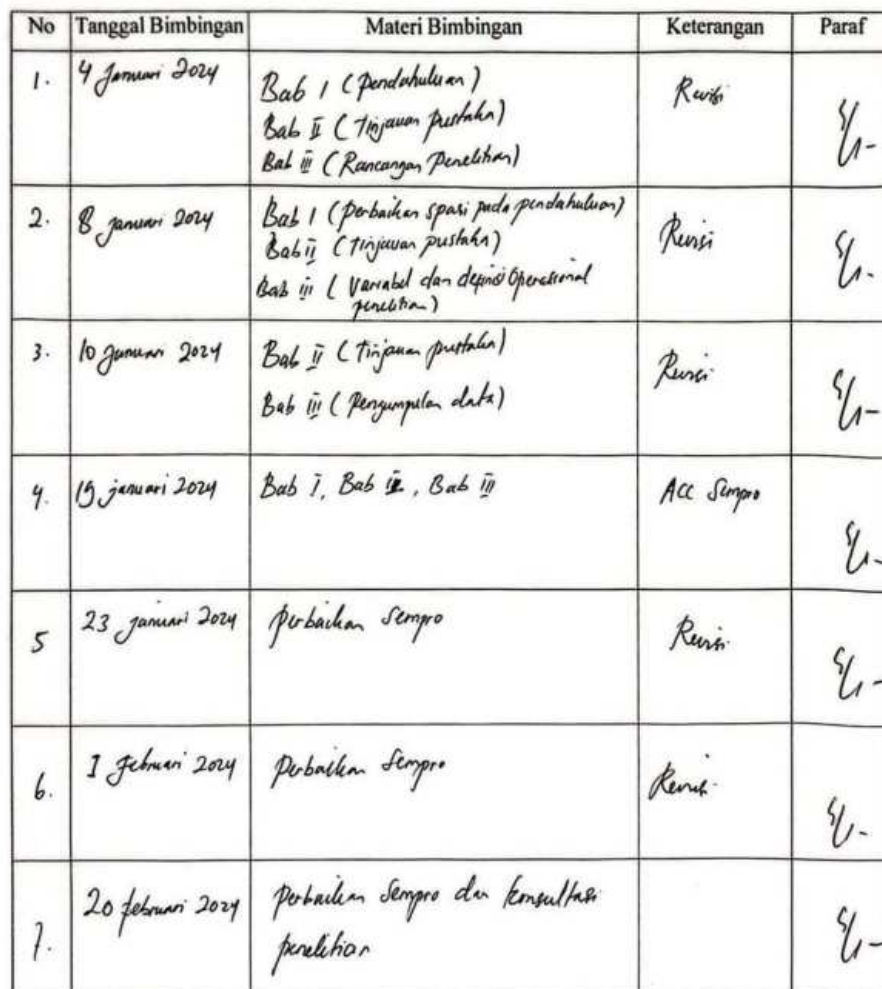 No Tanggal Bimbingan Materi Bimbingan Keterangan Paraf
1. 4 Januari 2024 Bab I (Pendahuluan) Revisi
Bab II (Tinjauan pustaka)
Bab III (Rancangan Penelitian)
2. 8 januari 2024 Bab I (perbaikan spasi pada pendahuluan) Revisi
Bab II (Tinjauan pustaka)
Bab III (Variabel dan definisi Operasional
penelitian)
3. 10 Januari 2024 Bab II (Tinjauan pustaka) Revisi
Bab III (Pengumpulan data)
4. 19 januari 2024 Bab I, Bab II, Bab III ACC Sempro
5 23 januari 2024 perbaikan Sempro Revisi
6. 1 Februari 2024 Perbaikan Sempro Revisi
7. 20 februari 2024 perbaikan Sempro dan konsultasi
penelitian